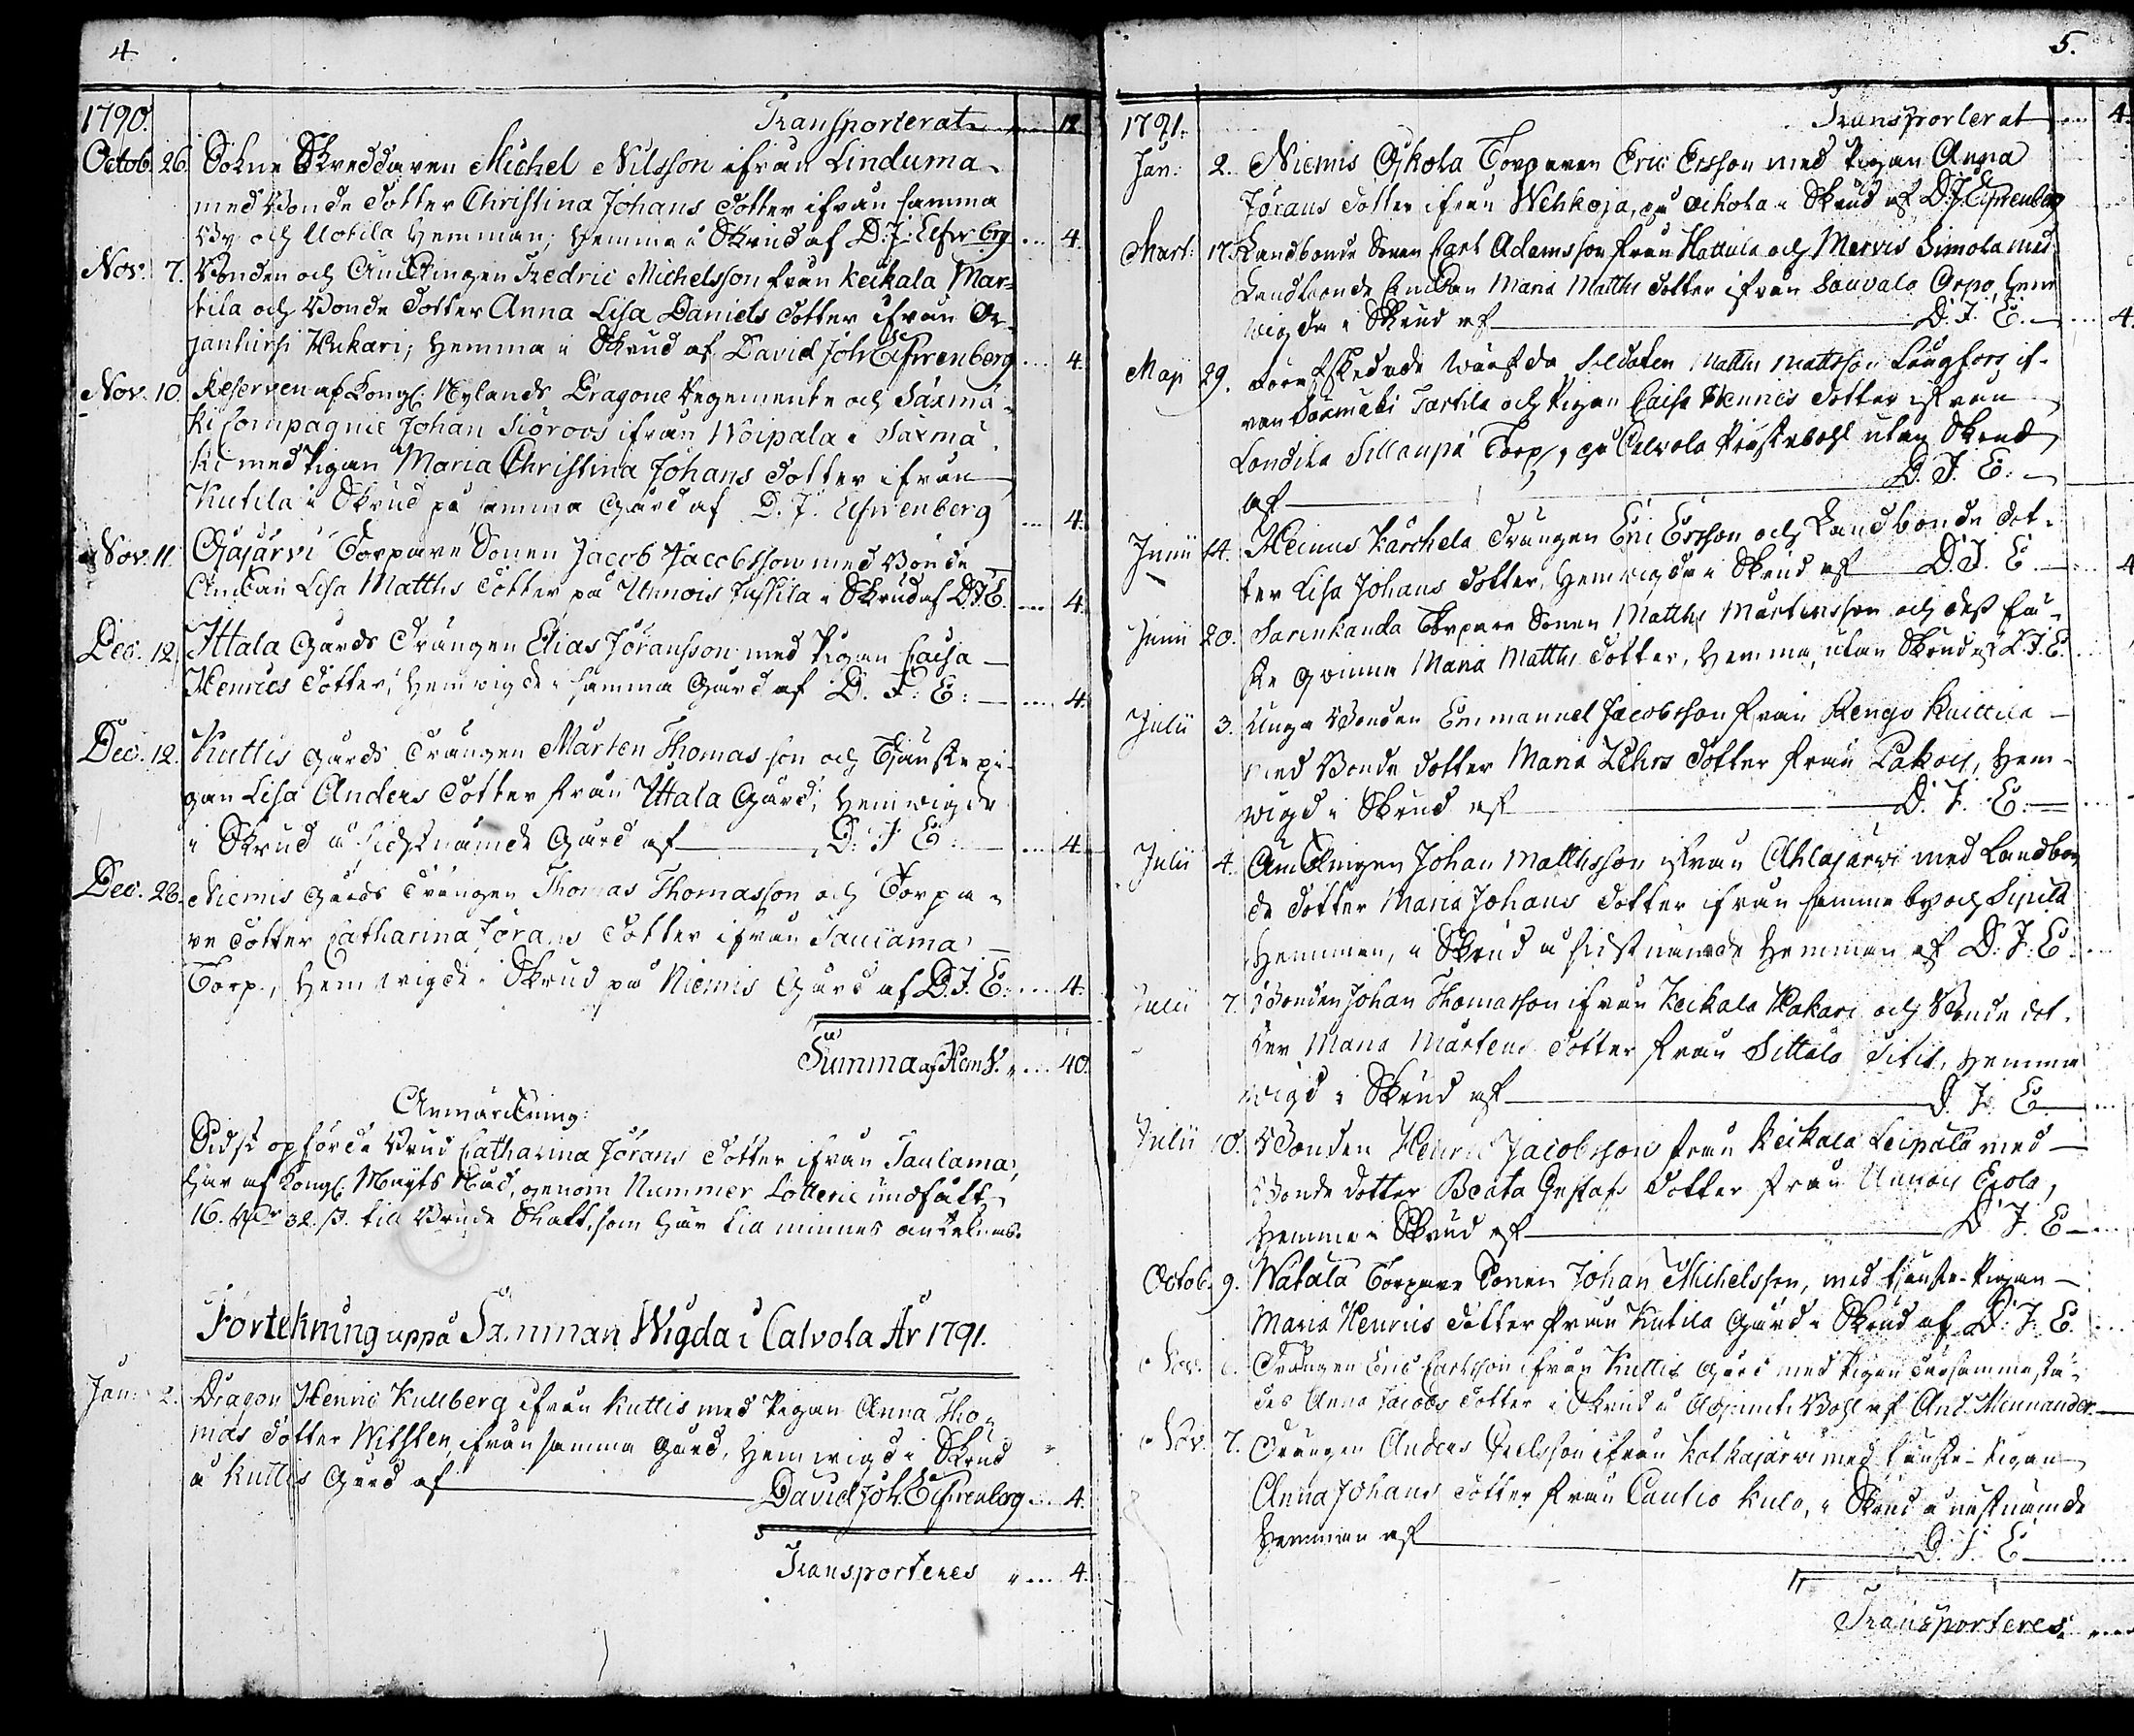 4.
1790. Transporterat 12.
Octob. 26. Sokne Skreddaren Michel Nilsson ifrån Linduma
med Bonde dotter Christina Johans dotter ifrån samma
By och Uotila Hemman; hemma i Skrud af D. J. Elfwrbrg ... 4.
Nov. 7. Bonden och Enklingen Fredric Michelsson från Keikala Mar-
tila och Bonde dotter Anna Lisa Daniels dotter ifrån Or-
janhirsi Hukari; hemma i Skrud af David Joh. Elfwrenberg ... 4.
Nov. 10. Reserven af Kongl. Nylands Dragone Regemente och Säxmä-
ki Compagnie Johan Siöroos ifrån Woipala i Saxmä-
ki med Pigan Maria Christina Johans dotter ifrån
Kutila i Skrud på samma Gård af D. J. Elfwrenberg ... 4.
Nov. 11. Ojajärvi Torpare Sonen Jacob Jacobsson med Bonde
Enkan Lisa Matths dotter på Unnois Jussila i Skrud af D. J. E. ... 4.
Dec. 12. Ittala Gårds Drängen Elias Jöransson med Pigan Caisa
Henrics dotter, hemwigde i samma Gård af D. J. E: ... 4.
Dec. 12. Kuttis Gårds Drängen Mårten Thomasson och Tjänstepi-
gan Lisa Anders dotter från Ittala Gård, hemwigde
i Skrud å sidstnämde Gård af D. J. E. ... 4.
Dec. 26. Niemis Gårds Drängen Thomas Thomasson och Torpa-
re dotter Catharina Jörans dotter ifrån Taulama
Torp, hemwigde i Skrud på Niemis Gård af D. J. E. ... 4.
Summa af Hem V. ... 40.
Anmärckning:
Sidst opförde Brud Catharina Jörans dotter ifrån Taulama,
har af Kongl. Mayts Nåd, genom Nummer Lotterie undfått
16. Rdr 32. ß. till Brude Skatt, som här till minnes antecknas.
Förtekning uppå Samman Wigda i Calvola År 1791.
Jan: 2. Dragon Henric Kullberg ifrån Kuttis med Pigan Anna Tho-
mas dotter Witsten, ifrån samma Gård, hemwigd i Skrud
å Kuttis Gård af David Joh. Elfwrenberg ... 4.
Transporteres ... 4.
5.
1791. Transporterat ... 4.
Jan: 2. Niemis Ojkola Torparen Eric Ersson med Pigan Anna
Jörans dotter ifrån Wehkoja, på Ackola i Skrud af D. J. Elfwrenberg
Mart: 17. Landbonde Sonen Carl Adamsson från Hattula och Mervis Simola med
Landbonde Enckan Maria Matths dotter ifrån Sauvala Orpo, hem
wigda i Skrud af D. J. E. ... 4.
Maji 29. Soldaten Matths Mattsson Långfors if-
rån Saxmäki Tartila och Pigan Caisa Henrics dotter ifrån
Torp, på Calvola Prästebohl utan Skrud
af D. J. E.
Junii 14. Heinus Kärchela Drängen Eric Ersson och Landbonde dot-
ter Lisa Johans dotter, hemwigde i Skrud af D. J. E. ... 4
Junii 20. Sarenkanda Torpare Sonen Matths Mårtensson och dess Fä-
ste Qvinna Maria Matths dotter, hemma, utan Skrud af D. J. E.
Julii 3. Unga Bonden Emmanuel Jacobsson från Rengo Kuittila
med Bonde dotter Maria Lehrs dotter från Pakois, hem-
wigd i Skrud af D. J. E.
Julii 4. Encklingen Johan Matthsson ifrån Ahlajärwi med Landbon
de dotter Maria Johans dotter ifrån samma by och Sipilä
Hemman, i Skrud å sidstnämde Hemman af D. J. E.
Julii 7. Bonden Johan Thomasson ifrån Keikala Hakari och Bonde dot-
ter Maria Mårtens dotter från Sittala Sitit, hemma
wigd i Skrud af D. J. E.
Julii 10. Bonden Henric Jacobsson från Keikala Leipälä med
Bonde dotter Beata Gustafs dotter från Unnois Eiola,
hemma i Skrud af D. J. E.
Octob. 9. Watala Torpare Sonen Johan Michelsson, med tjenste-Pigan
Maria Henrics dotter från Kutila Gård i Skrud af D. J. E.
Nov. 6. Drängen Eric Carlsson ifrån Kuttis Gård med Pigan dersammastä-
des Anna Jacobs dotter i Skrud å Adjuncts Bohl af And. Mennander
Nov. 7. Drängen Anders ifrån Kotkajärwi med tjenste-Pigan
Anna Johans dotter från Cautio Kulo, i Skrud å nestnämde
Hemman af D. J. E.
Transporteres